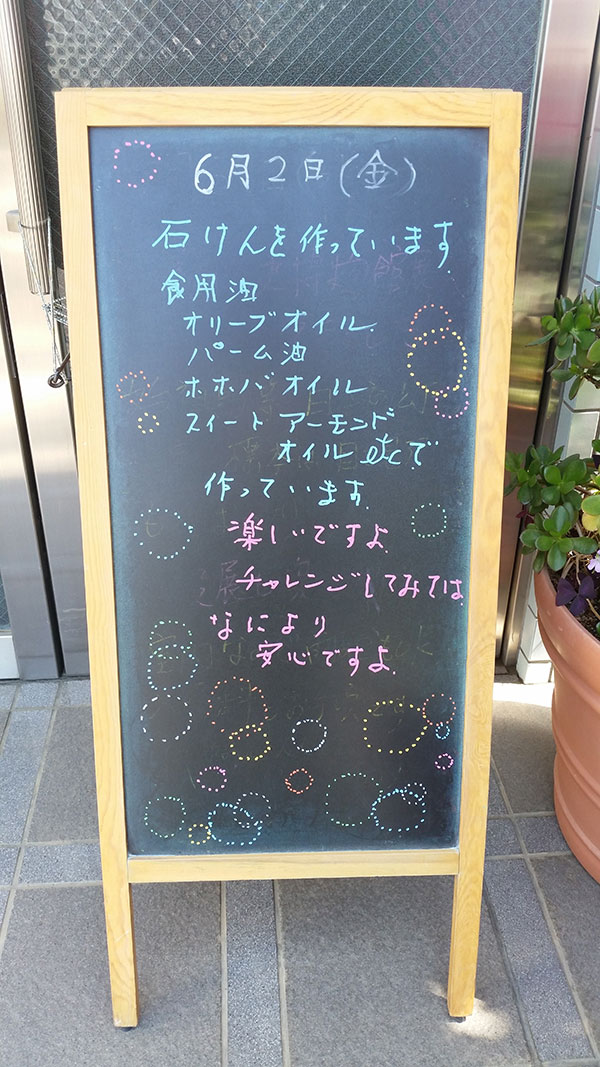 6月2日(金)
石けんを作っています
食用油
オリーブオイル
パーム油
ホホバオイル
スイートアーモンド
オイル etcで
作っています
楽しいですよ
チャレンジしてみては
なにより
安心ですよ